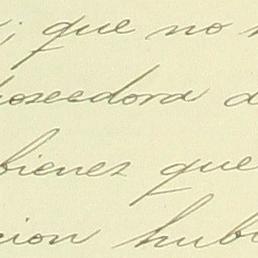 ; que no
poseedora d
bienes que
cion hub